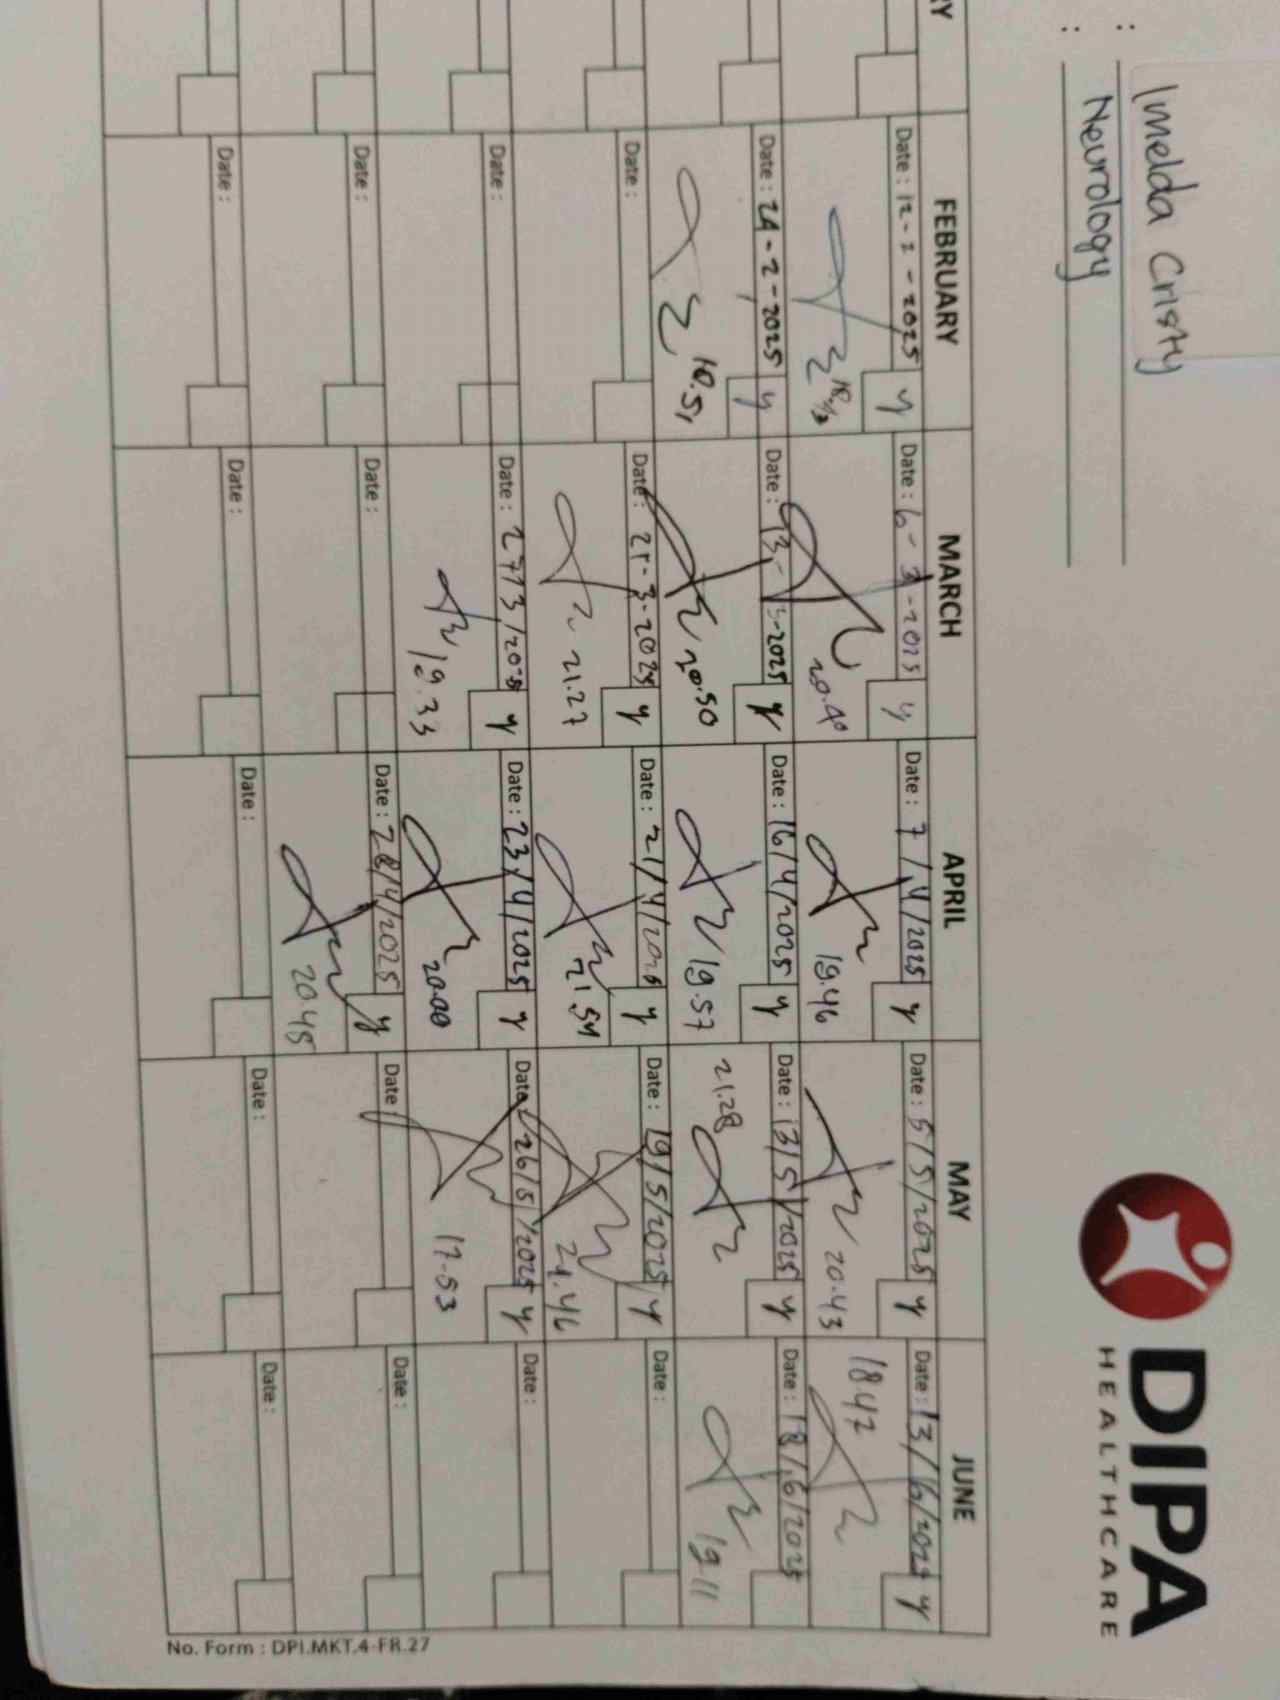 : Imelda Cristy
: Neurology
DIPA
HEALTHCARE
RY
FEBRUARY
MARCH
APRIL
MAY
JUNE
Date : 12-2-2025 y
Date : 6-3-2025 y
Date : 7/4/2025 y
Date : 5/5/2025 y
Date : 13/6/2025 y
20.40
19.46
20.43
18.47
Date : 24-2-2025 y
Date : 13-3-2025 y
Date : 16/4/2025 y
Date : 13/5/2025 y
Date : 18/6/2025
10.51
20.50
19.57
21.28
19.11
Date :
Date : 21-3-2025 y
Date : 21/4/2025 y
Date : 19/5/2025 y
Date :
21.27
21.54
21.46
Date :
Date : 27/3/2025 y
Date : 23/4/2025 y
Date : 26/5/2025 y
Date :
19.33
20.00
17.53
Date :
Date :
Date : 28/4/2025 y
Date
Date :
20.45
Date :
Date :
Date :
Date :
Date :
No. Form : DPI.MKT.4-FR.27